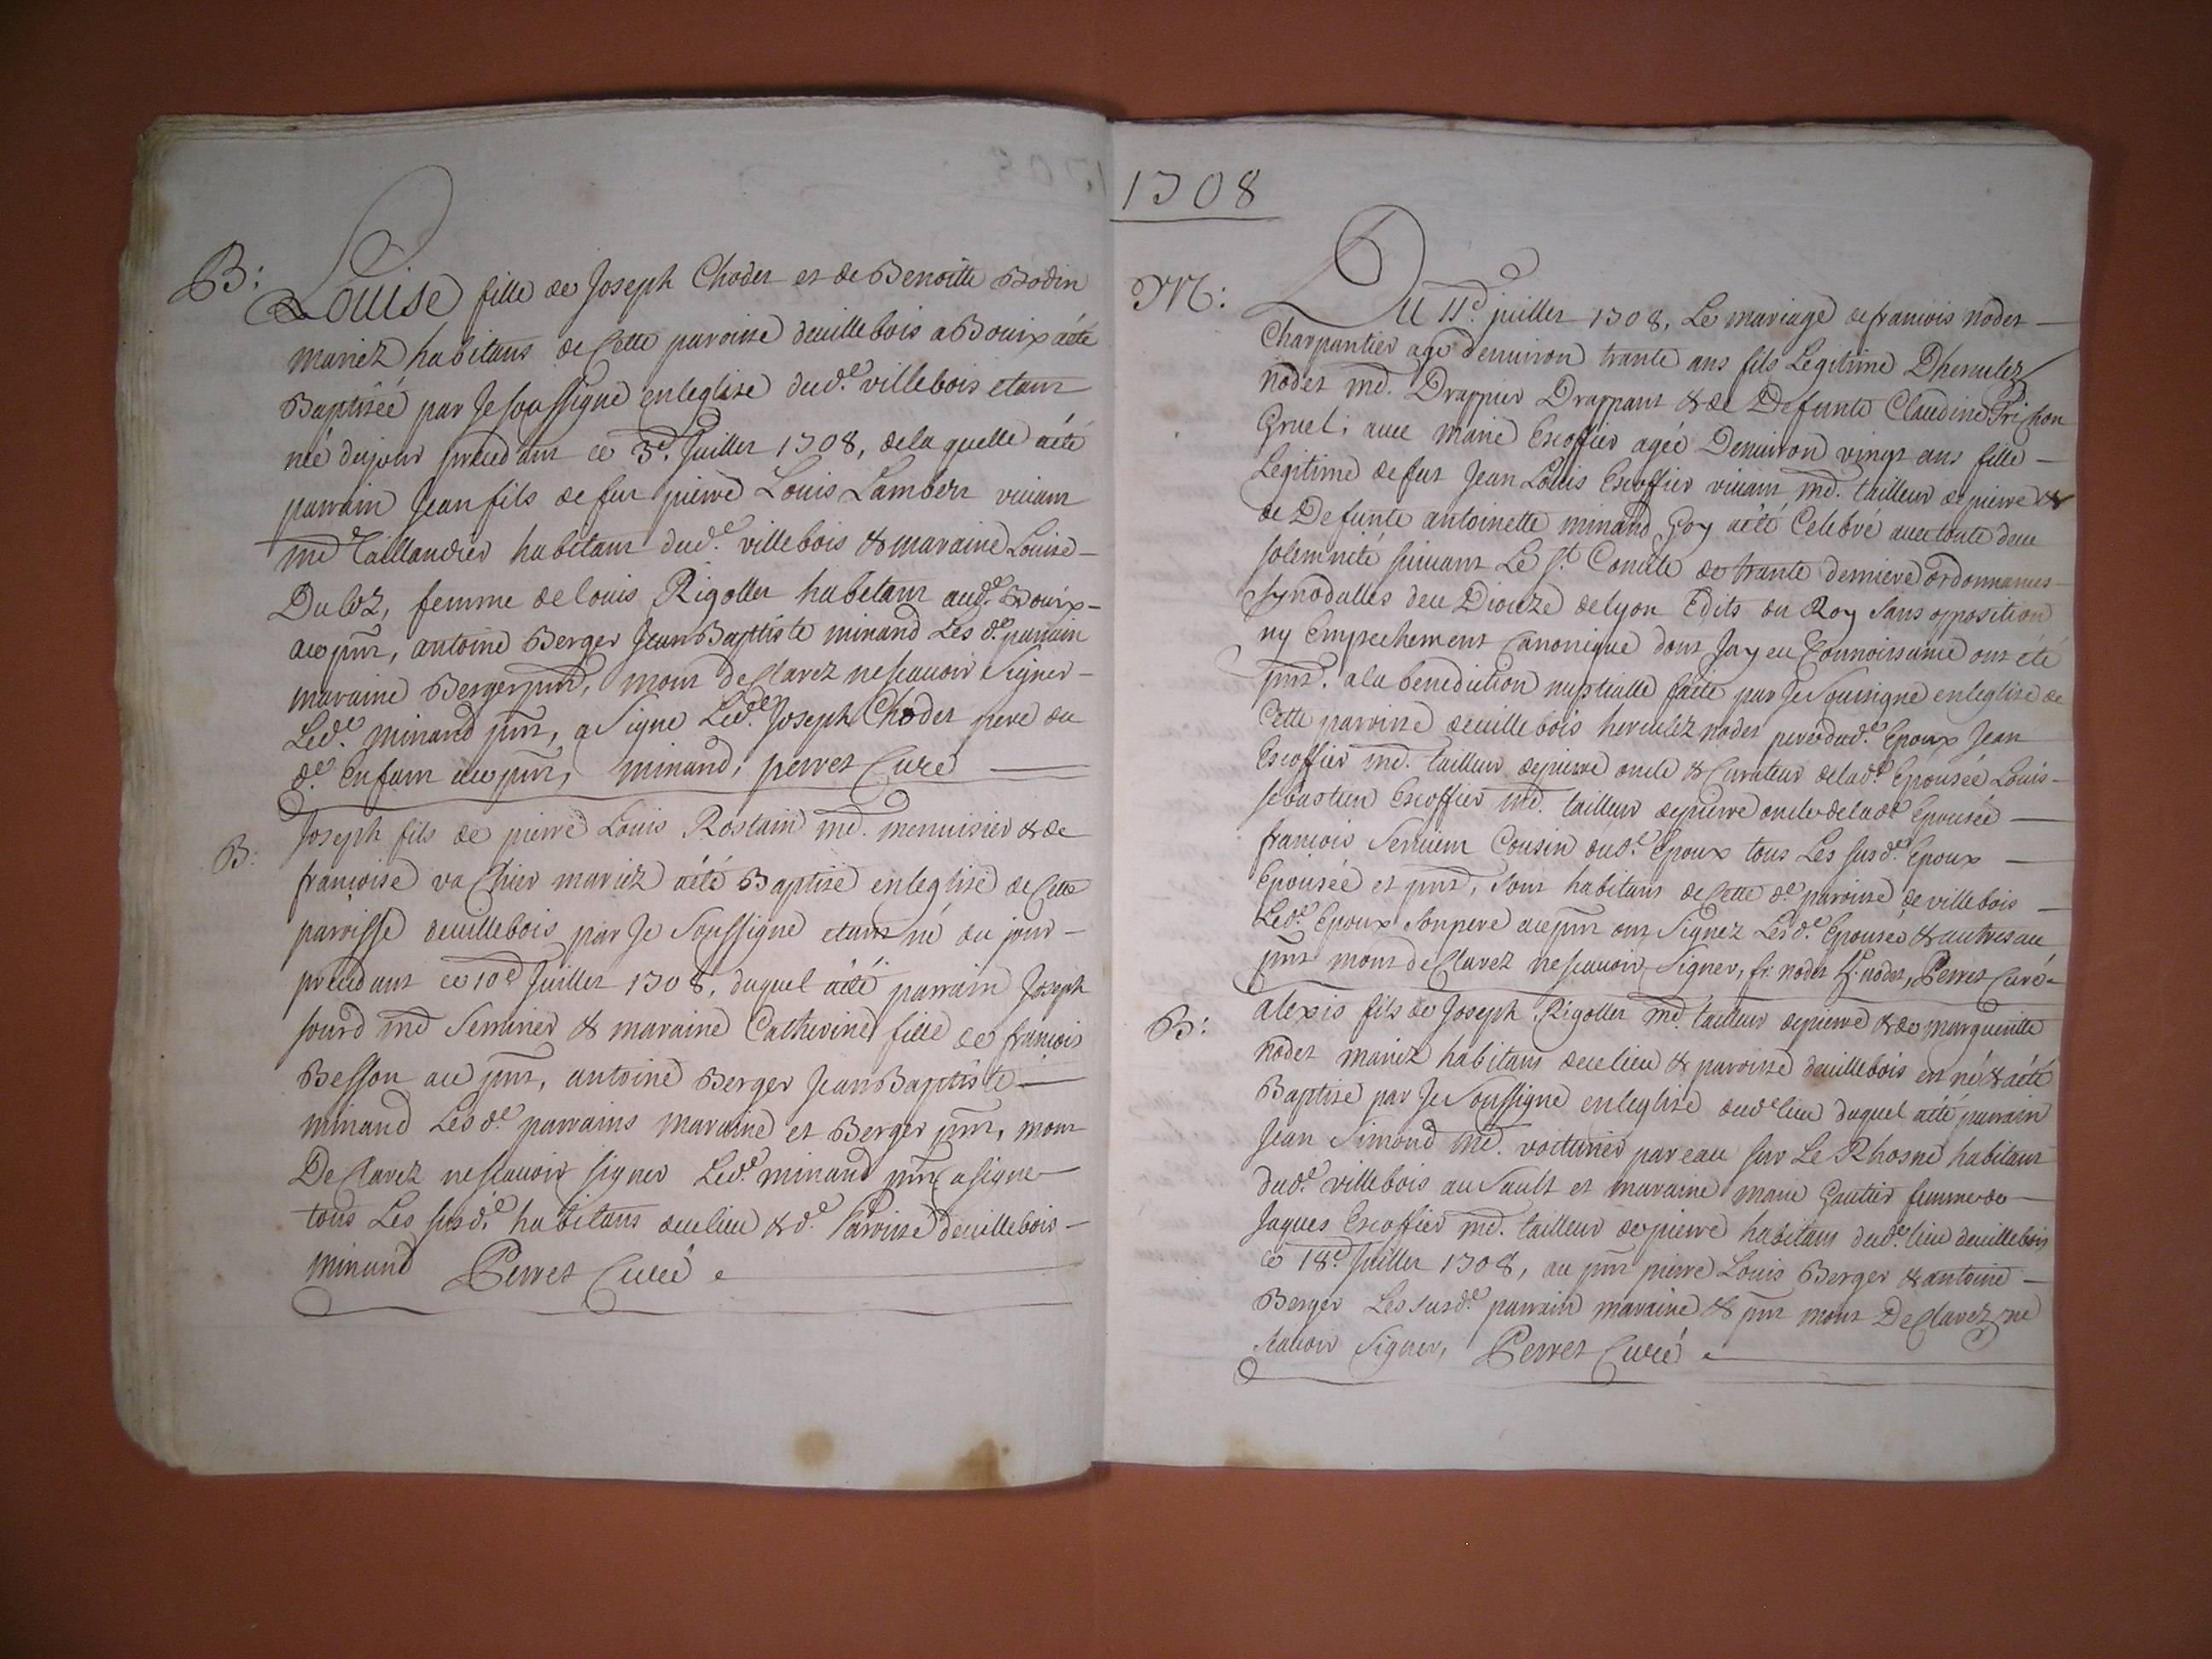 B: Louise fille de Joseph Chodet et de Benoitte Bodin
mariez habitans de Cette paroisse deuillebois a Bouix aété
Baptiséé par Je soussigné enleglise dud.e villebois etant
née dujour preced ant ce 3.e Juillet 1708, dela quelle aété
parrain Jean fils de fut pierre Louis Lambert viuant
md Taillandier habitant dud.e villebois & maraine Louise
femme de louis Rigollet habitant aud.e Bouix
au pnt, antoine Berger Jean Baptiste minand Les d.e parrain
maraine Berger pnt, mont declarez nescauoir Signer
Led.e minand pnt, a Signé Led.e Joseph Chodet pere du
d.e Enfant au pnt, minand, perret Curé
B: Joseph fils de pierre Louis Rostain md. menuisier & de
francoise va Chier mariez aété Baptisé enleglise de Cette
paroisse deuillebois par Je Soussigné etant né du jour
precedant ce 10e Juillet 1708, duquel aété parrain Joseph
sourd md Serrurier & maraine Catherine fille de francois
Besson au pnt, antoine Berger Jean Baptiste
minand Les d.e parrains maraine et Berger pnt, mont
Declarez nescauoir signer Led.e minand pnt a signé
tous Les susd.e habitans deulieu & d.e Paroisse deuillebois
minand Perret Curé
1708
M: Du 11.e juillet 1708, Le mariage de francois nodet
Charpantier agé denuiron trante ans fils Legitime Dherculez
nodet md. Drappier Drappant & de Defunte Claudine
Gruel; auec marie Escoffier agéé Denuiron vingt ans fille
Legitime de fut Jean Louis Escoffier viuant md. tailleur de pierre &
de Defunte antoinette minand Goy aété Celebré auectoute deue
solemnité suiuant Le st Concile de trante derniere ordonnances
synodalles deu Dioceze delyon Edits du Roy Sans opposition
ny Empechement Canonique dont Jay eu Connoissance ont été
pnt. ala benediction nuptialle faite par Je Sousigné enleglise de
Cette parroisse deuillebois herculez nodet peredud.e Epoux Jean
Escoffier md. tailleur depierre oncle & Curateur delad.e Epouséé Louis
sebastien Escoffier md. tailleur depierre oncle delade Epouséé
francois Cousin dud.e Epoux tous Les susd.e Epoux
Epouséé et pnt, Sont habitans de Cette d.e paroisse de villebois
Led.e Epoux Sonpere au pnt ont Signez Les d.e Epouséé & autres au
pnt mont declarez nescauoir Signer, fr: nodet h. nodet, Perret Curé
B: alexis fils de Joseph Rigollet md. tailleur depierre & de margueritte
nodet mariez habitans decelieu & paroisse deuillebois est né & aété
Baptisé par Je Soussigné enleglise dud.e lieu duquel aété parrain
Jean Simond md. voiturier par eau sur Le Rhosne habitant
dud.e villebois au Sault et maraine marie Gautier femme de
Jaques Escoffier md. tailleur depierre habitans dud.e lieu deuillebois
ce 18.e Juillet 1708, au pnt pierre Louis Berger & antoine
Berger Les susd.e parrain maraine & pnt mont Declarez ne
scauoir Signer, Perret Curé